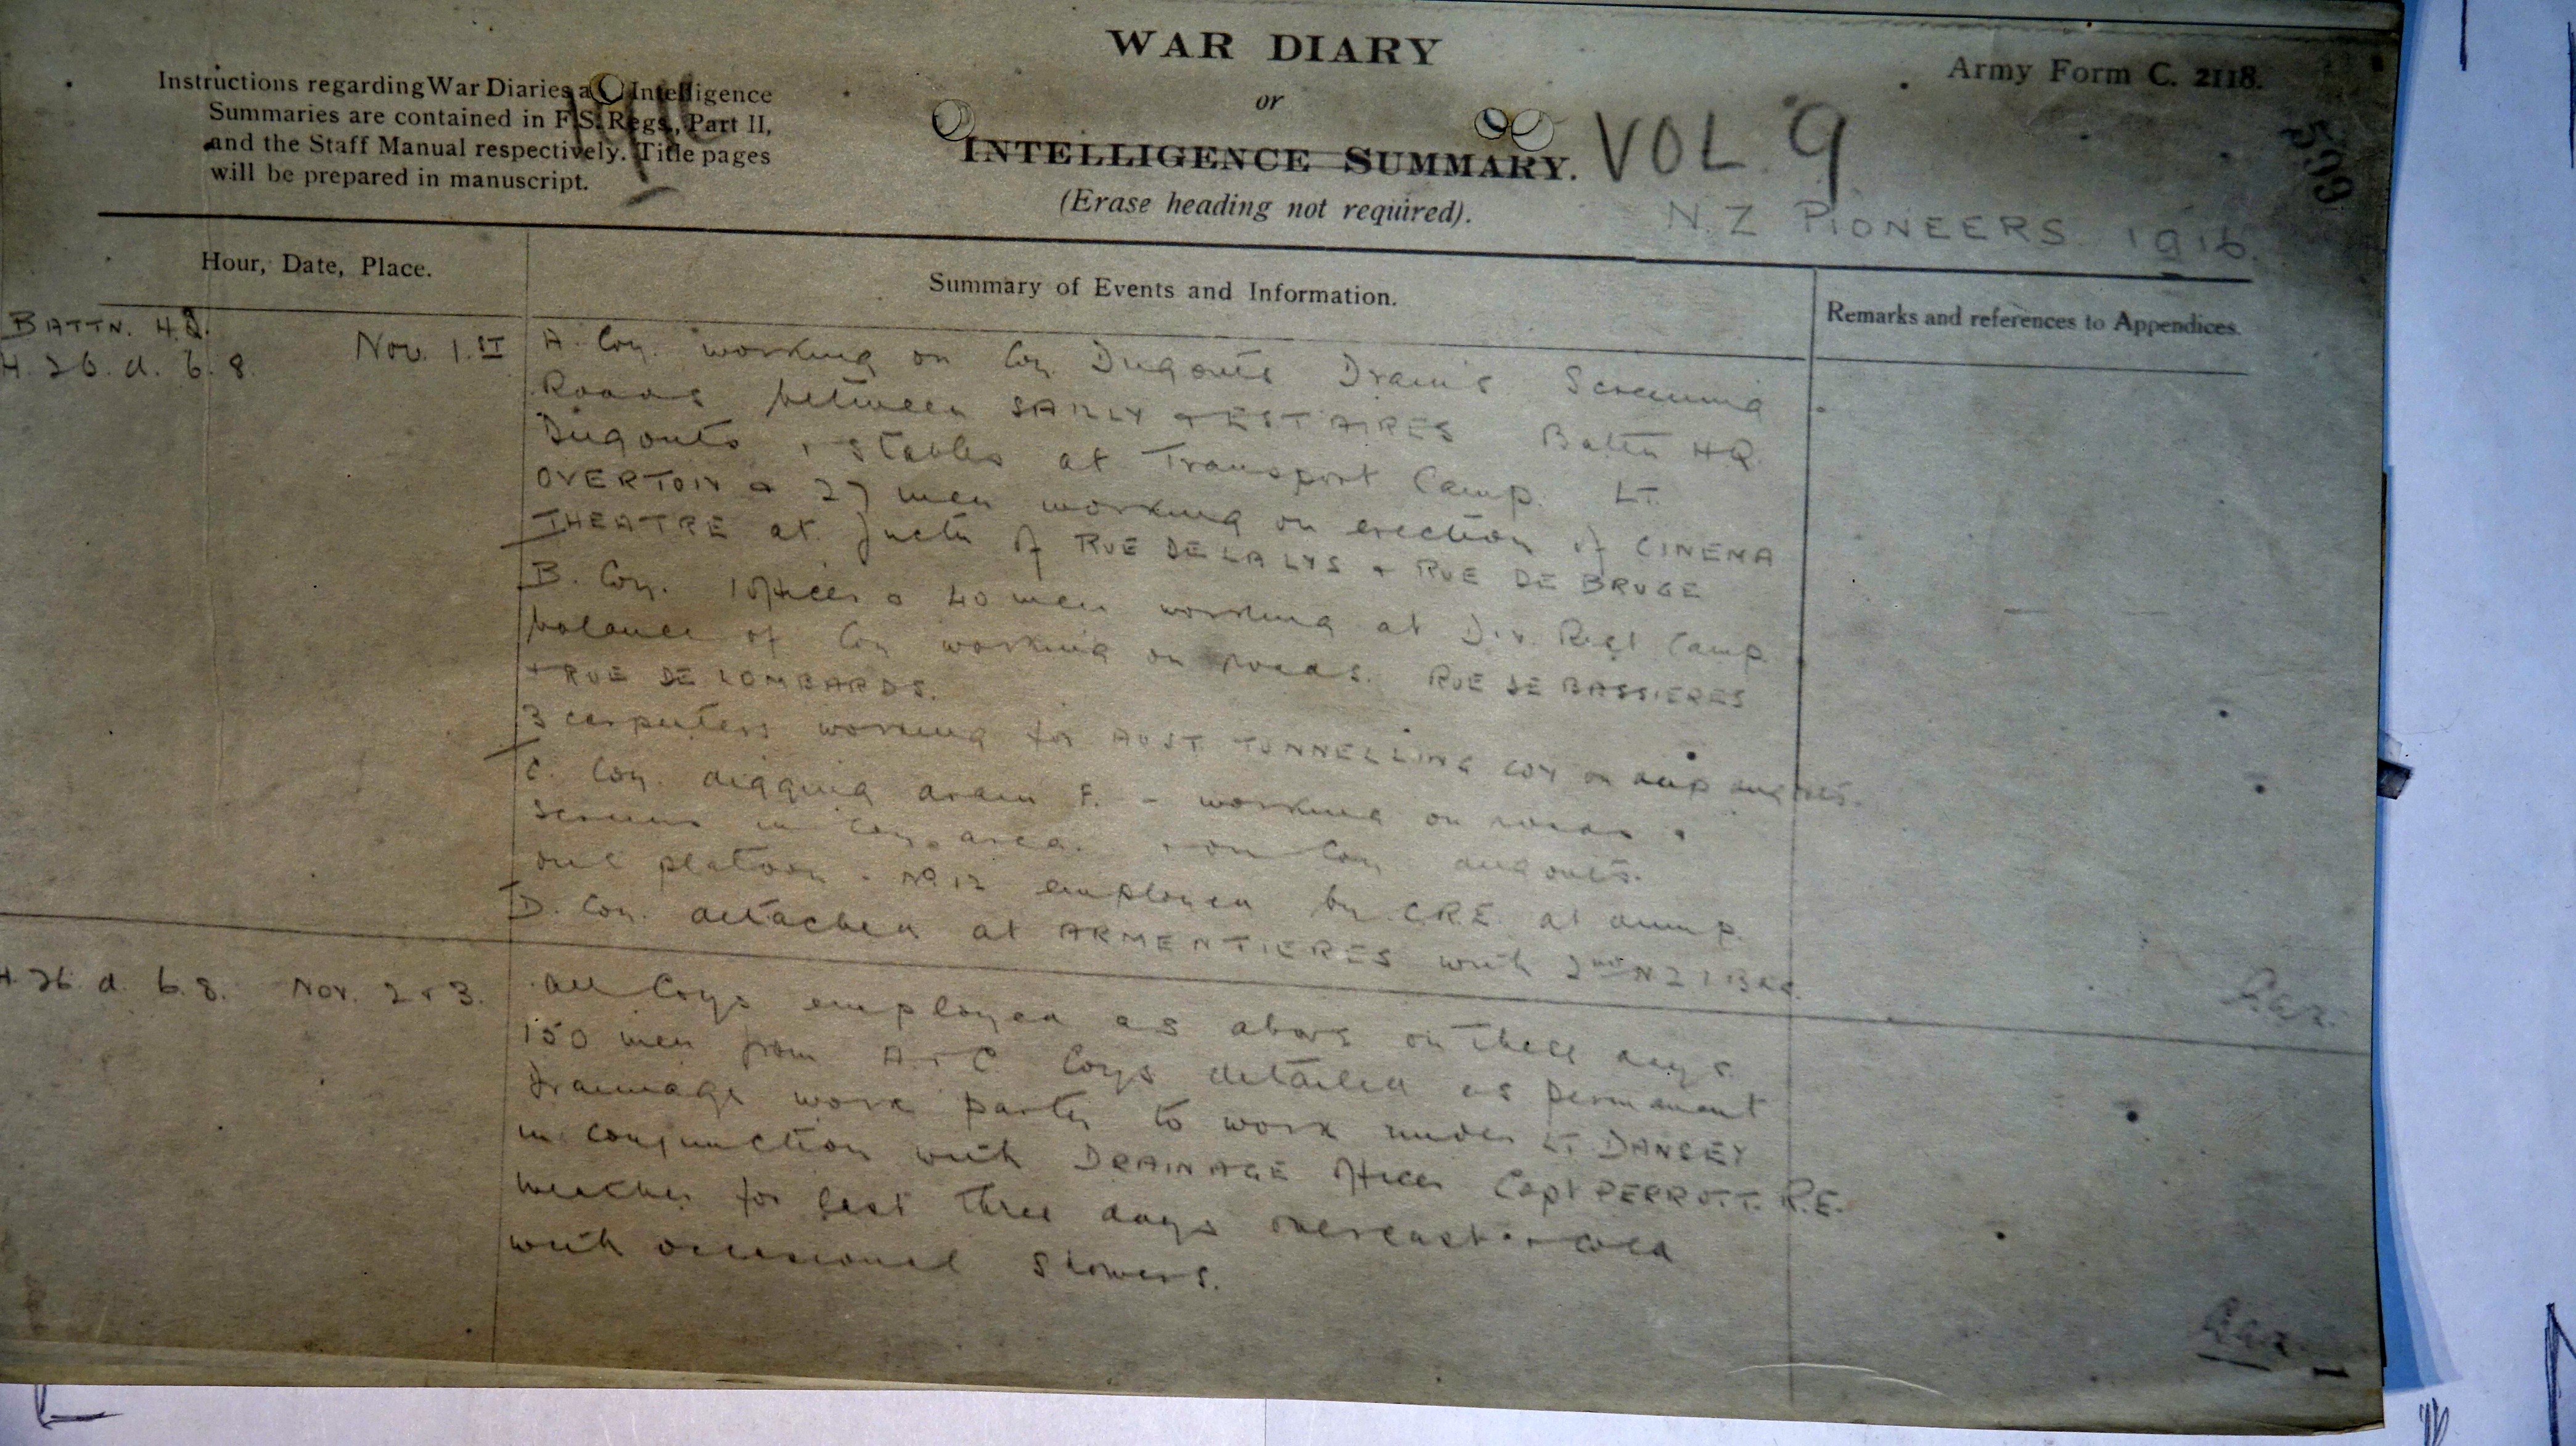 WAR DIARY
or
INTELLIGENCE SUMMARY.
(Erase heading not required).
Army Form C. 2118.
Instructions regarding War Diaries a Intelligence
Summaries are contained in F.S. Regs., Part II,
and the Staff Manual respectively. Title pages
will be prepared in manuscript.
VOL. 9
N.Z PIONEERS 1916.
599
Hour, Date, Place.
Summary of Events and Information.
Remarks and references to Appendices.
BATTN. H.Q.
H. 26. d. 6. 8. Nov. 1.ST
A. Coy. working on Coy. Dugouts Drains Screening
Roads between SAILLY & ESTAIRES Battn HQ.
Dugouts & stables at Transport Camp. LT.
OVERTON & 27 men working on erection of CINEMA
THEATRE at Junctn of RUE DE LA LYS & RUE DE BRUGE
B. Coy. 1 officer & 40 men working at Div. Rest Camp
balance of Coy working on roads. RUE DE BASSIERES
& RUE DE LOMBARDS.
3 carpenters working for AUST TUNNELLING COY on deep dugouts.
C. Coy. digging drain F. - working on roads &
screens in Coy. area. & on Coy dugouts.
one platoon - No 12 employed by C.R.E. at dump.
D. Coy. detached at ARMENTIERES with 2nd NZ I Bde.
H. 26. d. 6. 8. Nov. 2 & 3.
All Coys employed as above on these days.
150 men from A. & C. Coys detailed as permanent
drainage work party to work under LT. DANSEY
in conjunction with DRAINAGE Officer Capt PERROTT. R.E.
Weather for last three days overcast & cold
with occasional showers.